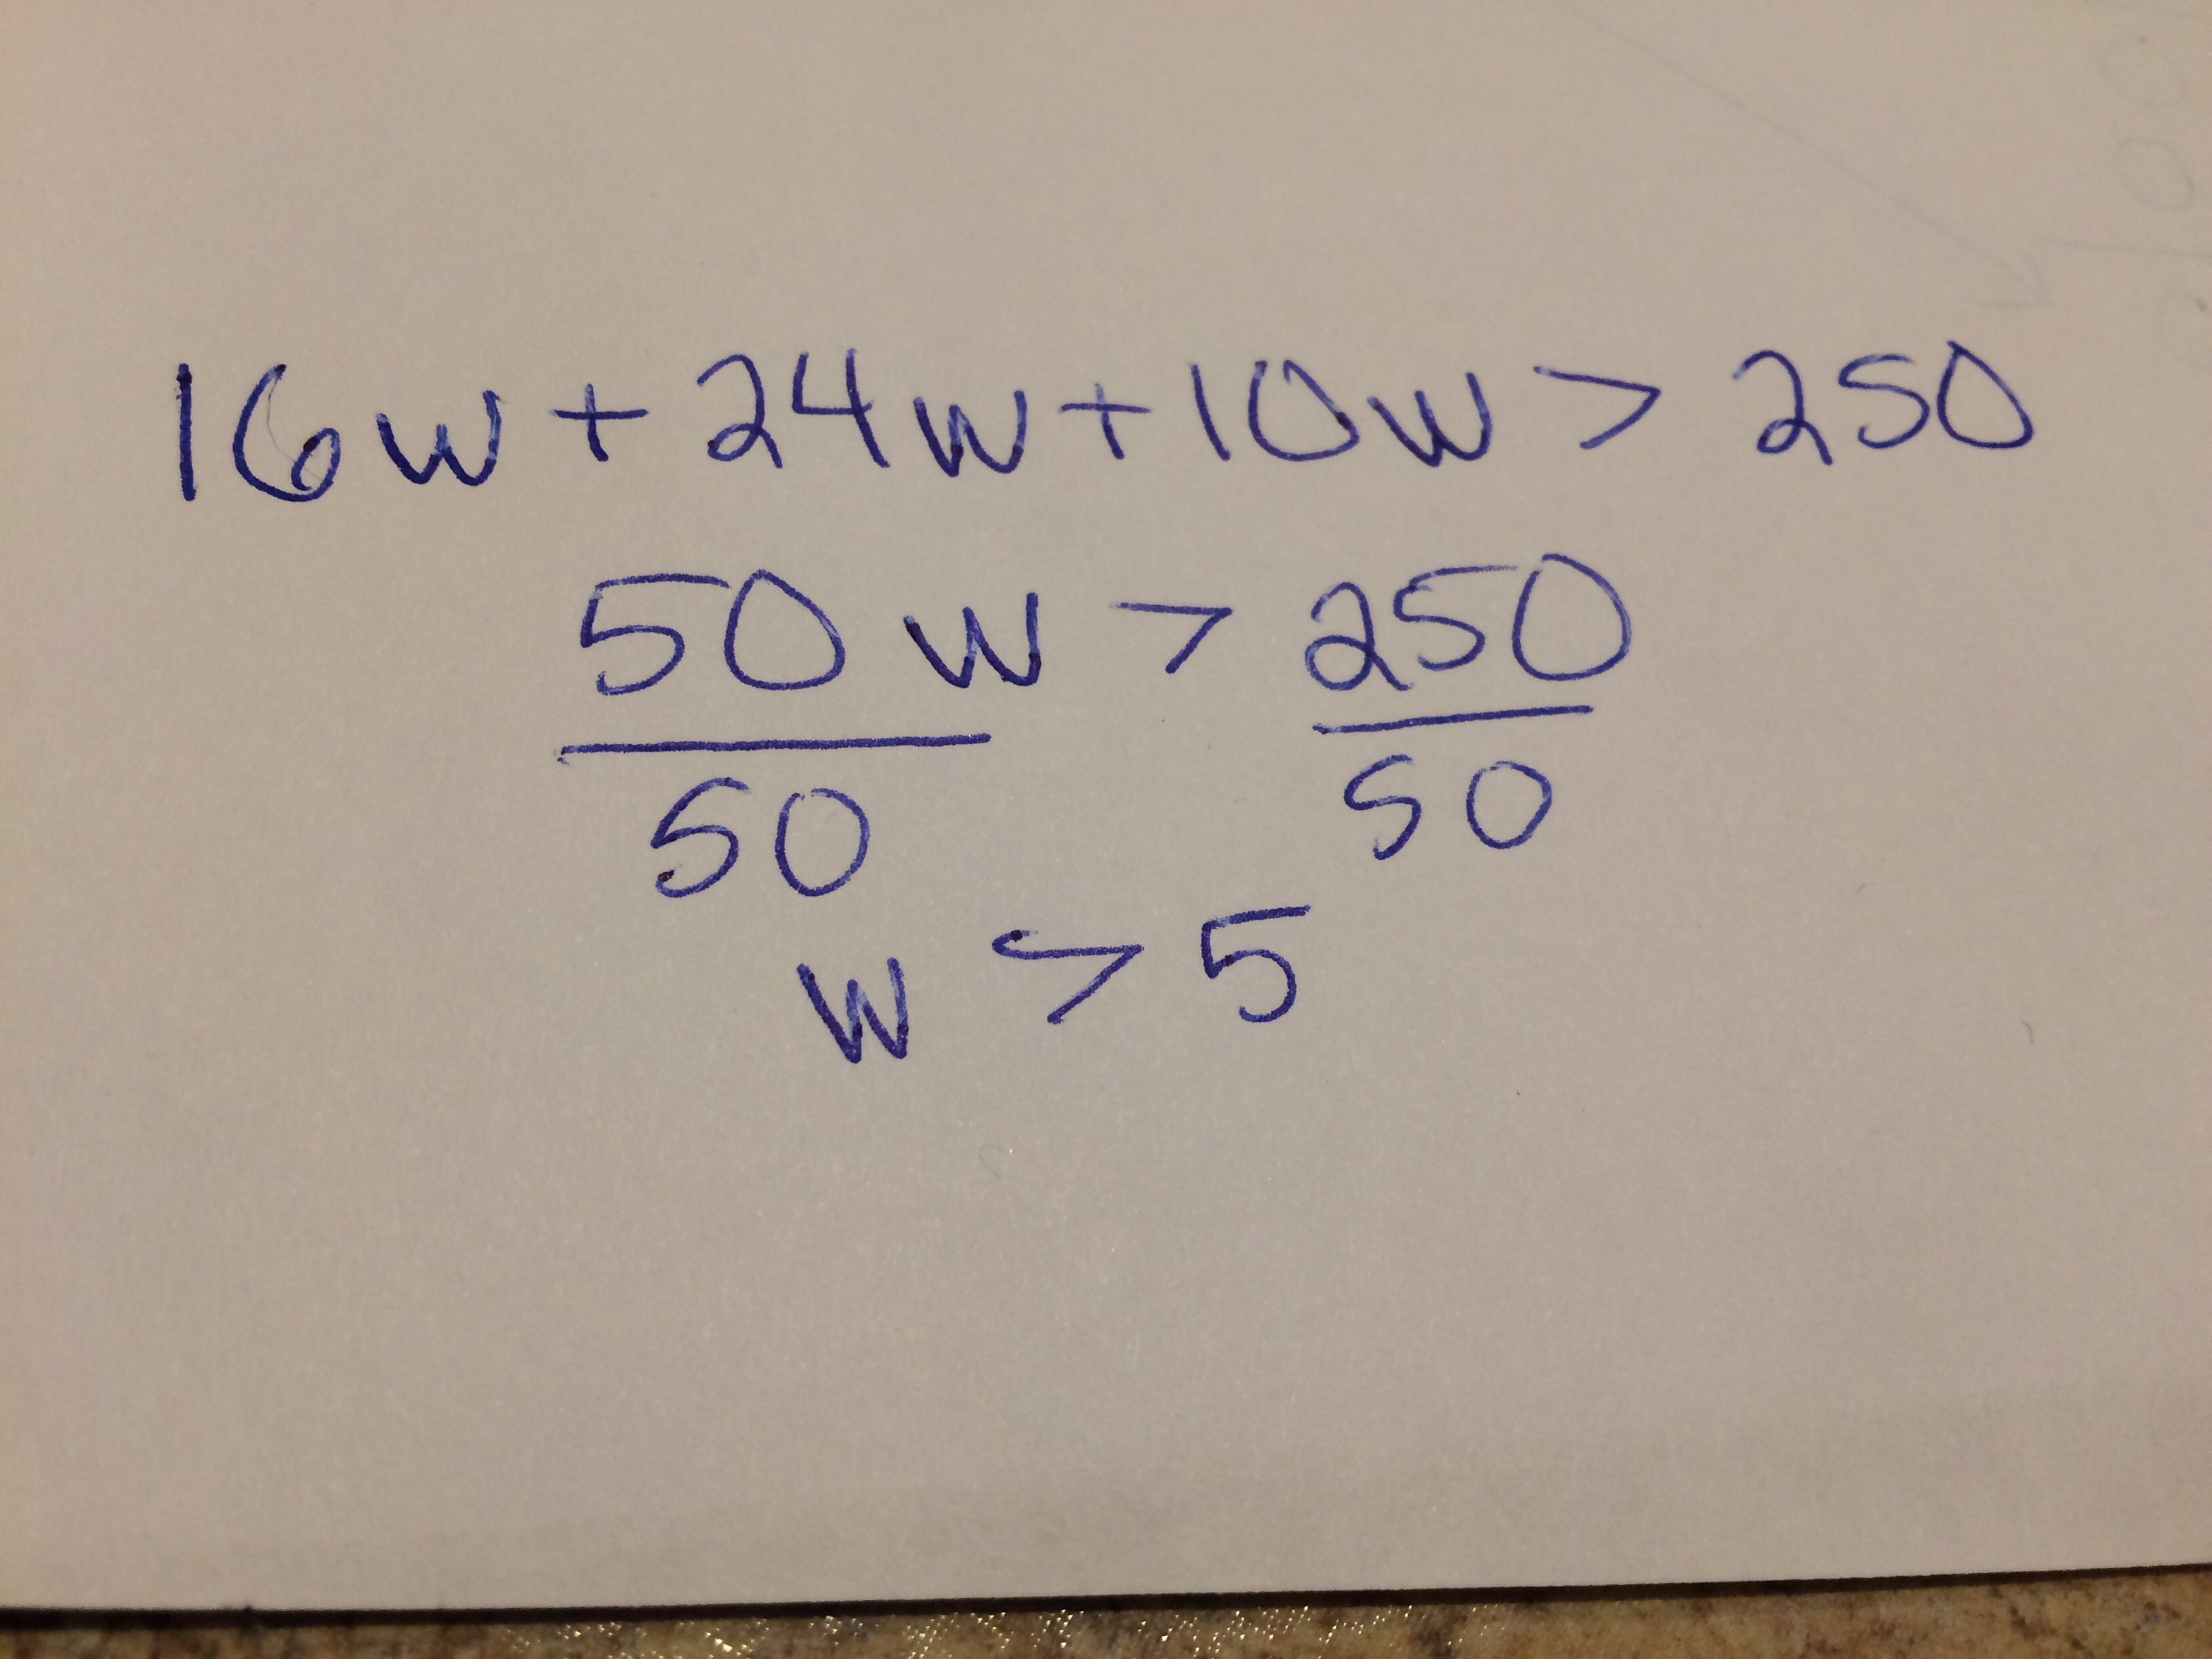 16w + 24w + 10w > 250
50w > 250
50 50
w > 5